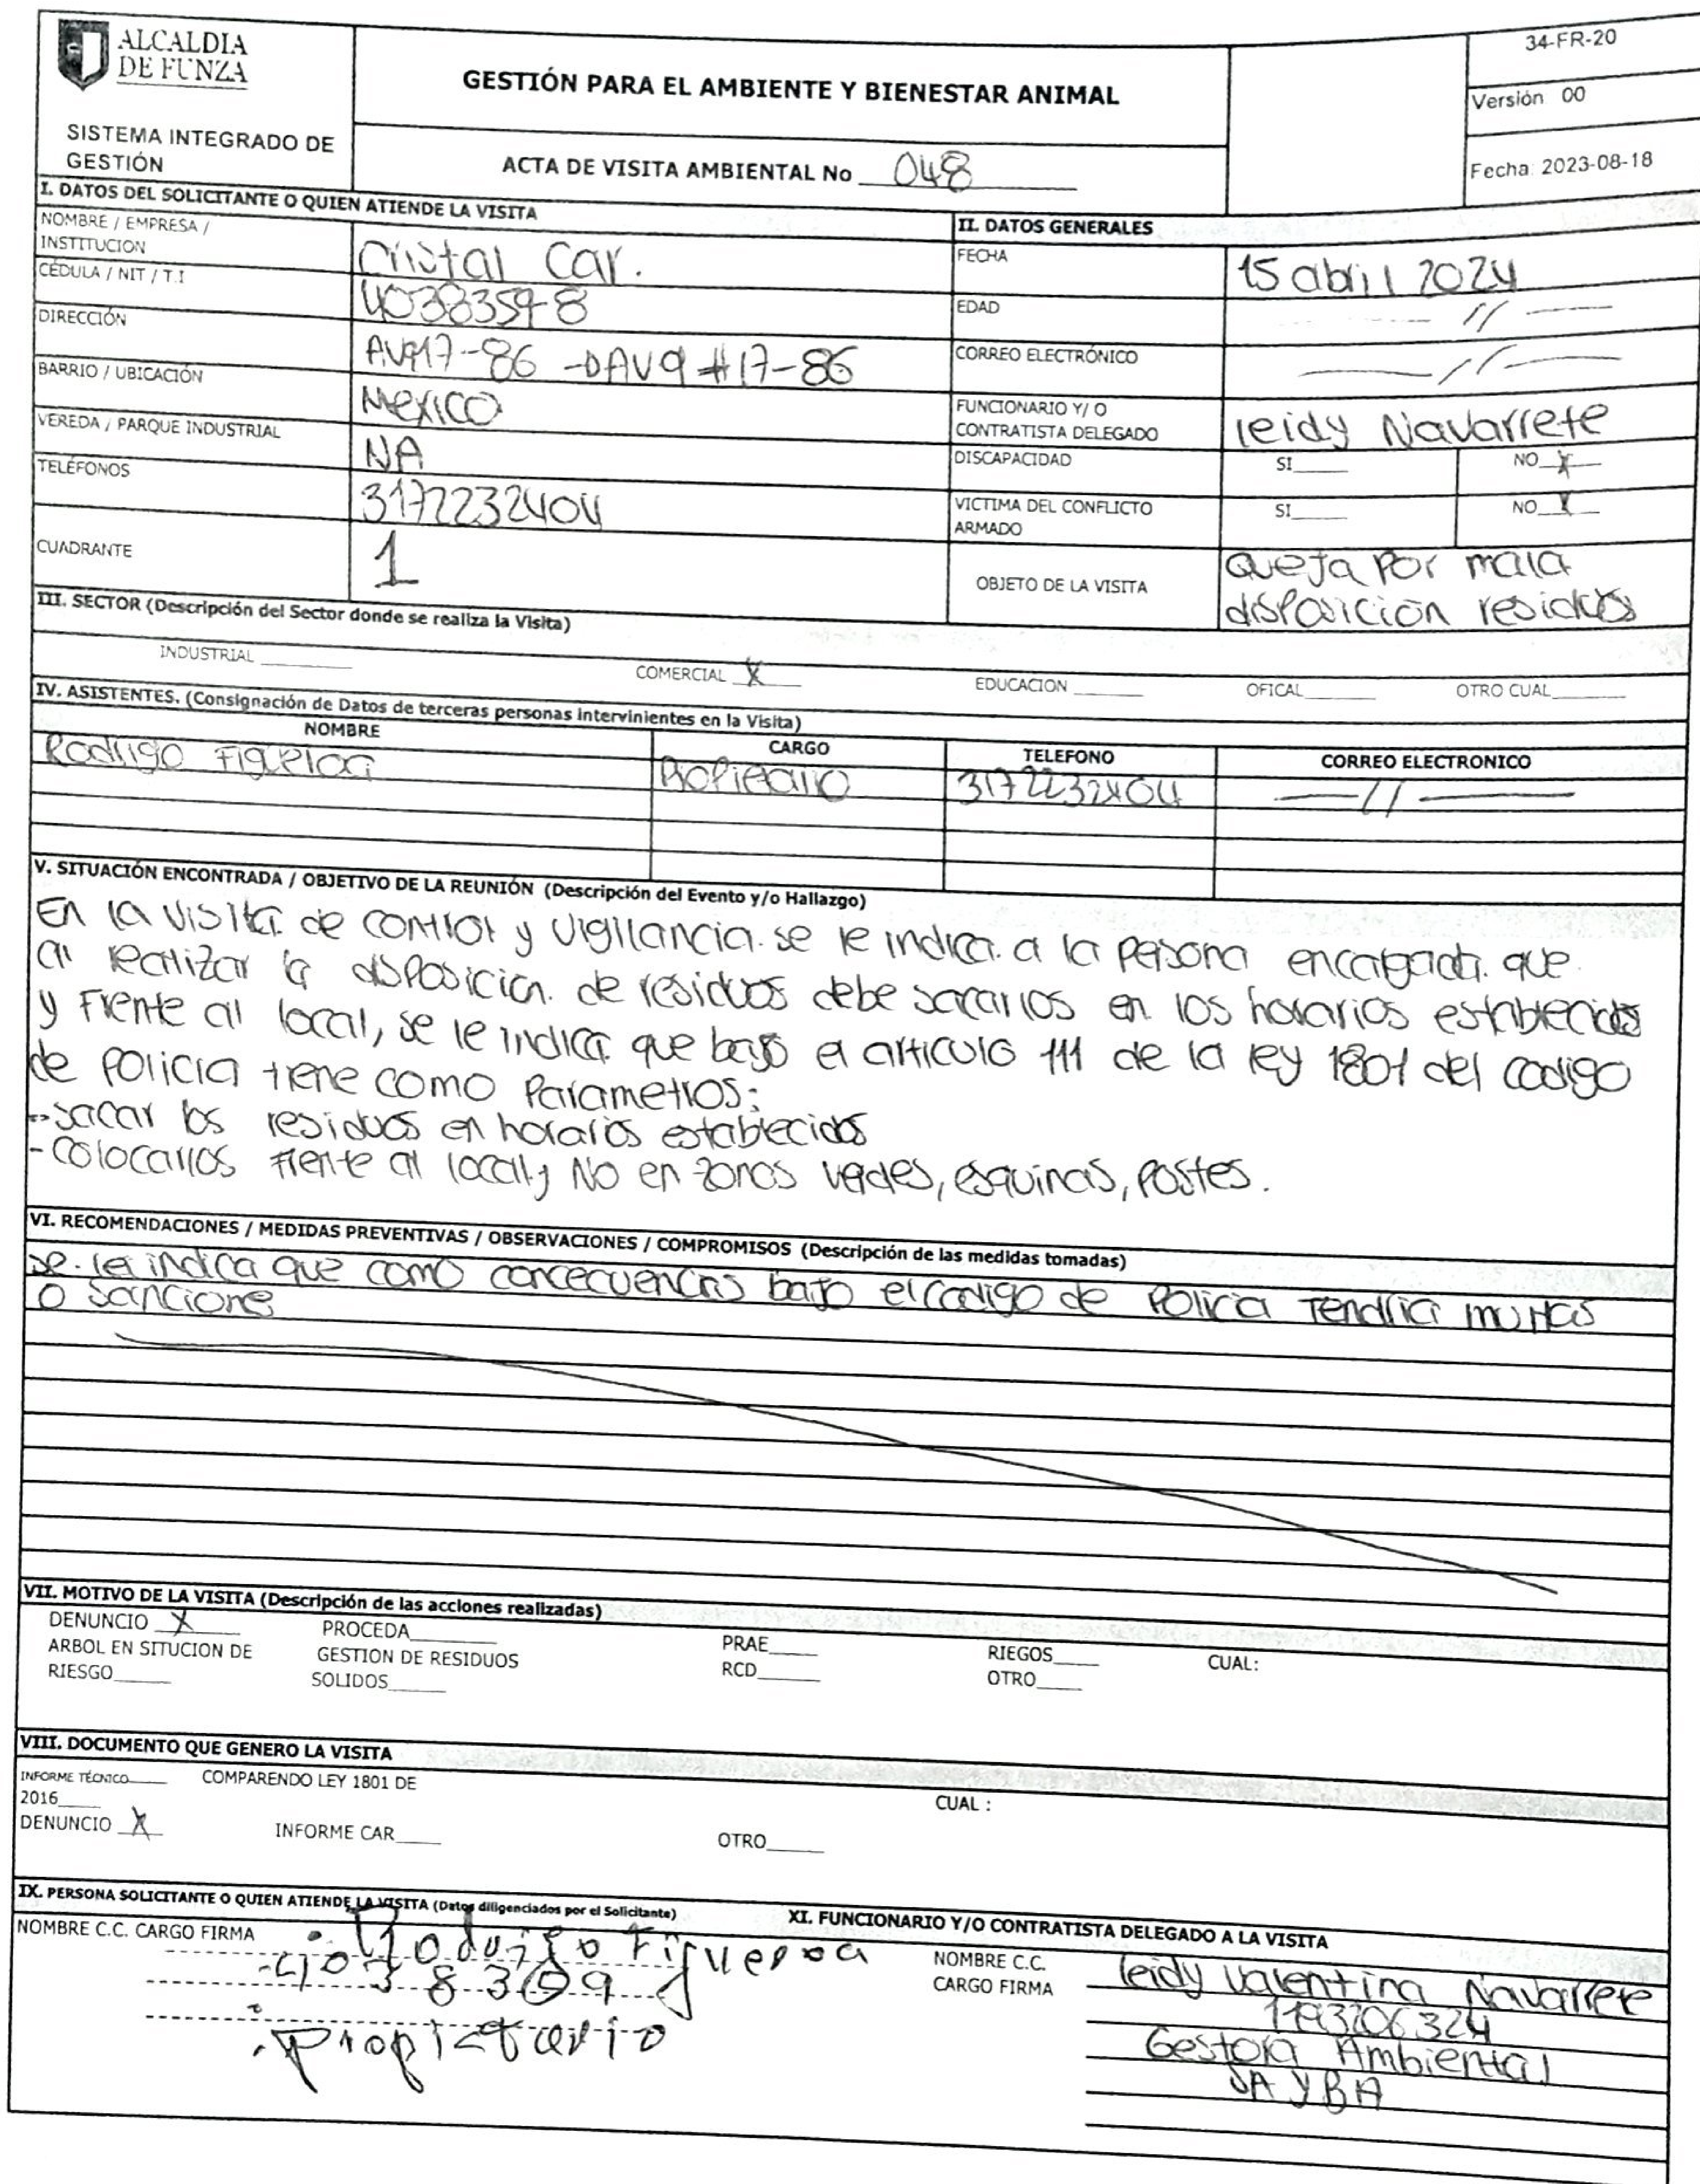 ALCALDIA
DE FUNZA
SISTEMA INTEGRADO DE
GESTIÓN
GESTIÓN PARA EL AMBIENTE Y BIENESTAR ANIMAL
ACTA DE VISITA AMBIENTAL No 048
34-FR-20
Versión 00
Fecha: 2023-08-18
I. DATOS DEL SOLICITANTE O QUIEN ATIENDE LA VISITA
NOMBRE / EMPRESA /
INSTITUCION Cristal Car.
CÉDULA / NIT / T.I
DIRECCIÓN AV917-86 -DAV9 #17-86
BARRIO / UBICACIÓN Mexico
VEREDA / PARQUE INDUSTRIAL NA
TELÉFONOS 3172232404
CUADRANTE 1
II. DATOS GENERALES
FECHA 15 abril 2024
EDAD //
CORREO ELECTRÓNICO //
FUNCIONARIO Y/ O
CONTRATISTA DELEGADO leidy Navarrete
DISCAPACIDAD SI____ NO X
VICTIMA DEL CONFLICTO
ARMADO SI____ NO X
OBJETO DE LA VISITA Queja por mala
disposición residuos
III. SECTOR (Descripción del Sector donde se realiza la Visita)
INDUSTRIAL ____ COMERCIAL X EDUCACION ____ OFICAL____ OTRO CUAL____
IV. ASISTENTES. (Consignación de Datos de terceras personas intervinientes en la Visita)
NOMBRE CARGO TELEFONO CORREO ELECTRONICO
Rodrigo Figueroa 3172232404 //
V. SITUACIÓN ENCONTRADA / OBJETIVO DE LA REUNIÓN (Descripción del Evento y/o Hallazgo)
En la visita de control y vigilancia se le indica a la persona encargada que
al realizar la disposicion de residuos debe sacarlos en los horarios establecidos
y Frente al local, se le indica que bajo el articulo 111 de la ley 1801 del codigo
de policia tiene como parametros:
- sacar los residuos en horarios establecidos
- Colocarlos frente al local y No en zonas verdes, esquinas, postes.
VI. RECOMENDACIONES / MEDIDAS PREVENTIVAS / OBSERVACIONES / COMPROMISOS (Descripción de las medidas tomadas)
se le indica que como concecuencias bajo el codigo de Policia Tendria multas
o sancione
VII. MOTIVO DE LA VISITA (Descripción de las acciones realizadas)
DENUNCIO X PROCEDA____ PRAE____ RIEGOS____ CUAL:
ARBOL EN SITUCION DE GESTION DE RESIDUOS RCD____ OTRO____
RIESGO____ SOLIDOS____
VIII. DOCUMENTO QUE GENERO LA VISITA
INFORME TÉCNICO____ COMPARENDO LEY 1801 DE
2016____ CUAL :
DENUNCIO X INFORME CAR____ OTRO____
IX. PERSONA SOLICITANTE O QUIEN ATIENDE LA VISITA (Datos diligenciados por el Solicitante)
NOMBRE C.C. CARGO FIRMA Rodrigo Figueroa
Propietario
XI. FUNCIONARIO Y/O CONTRATISTA DELEGADO A LA VISITA
NOMBRE C.C.
CARGO FIRMA
leidy Valentina Navarrete
1193206324
Gestora Ambiental
SAYBA